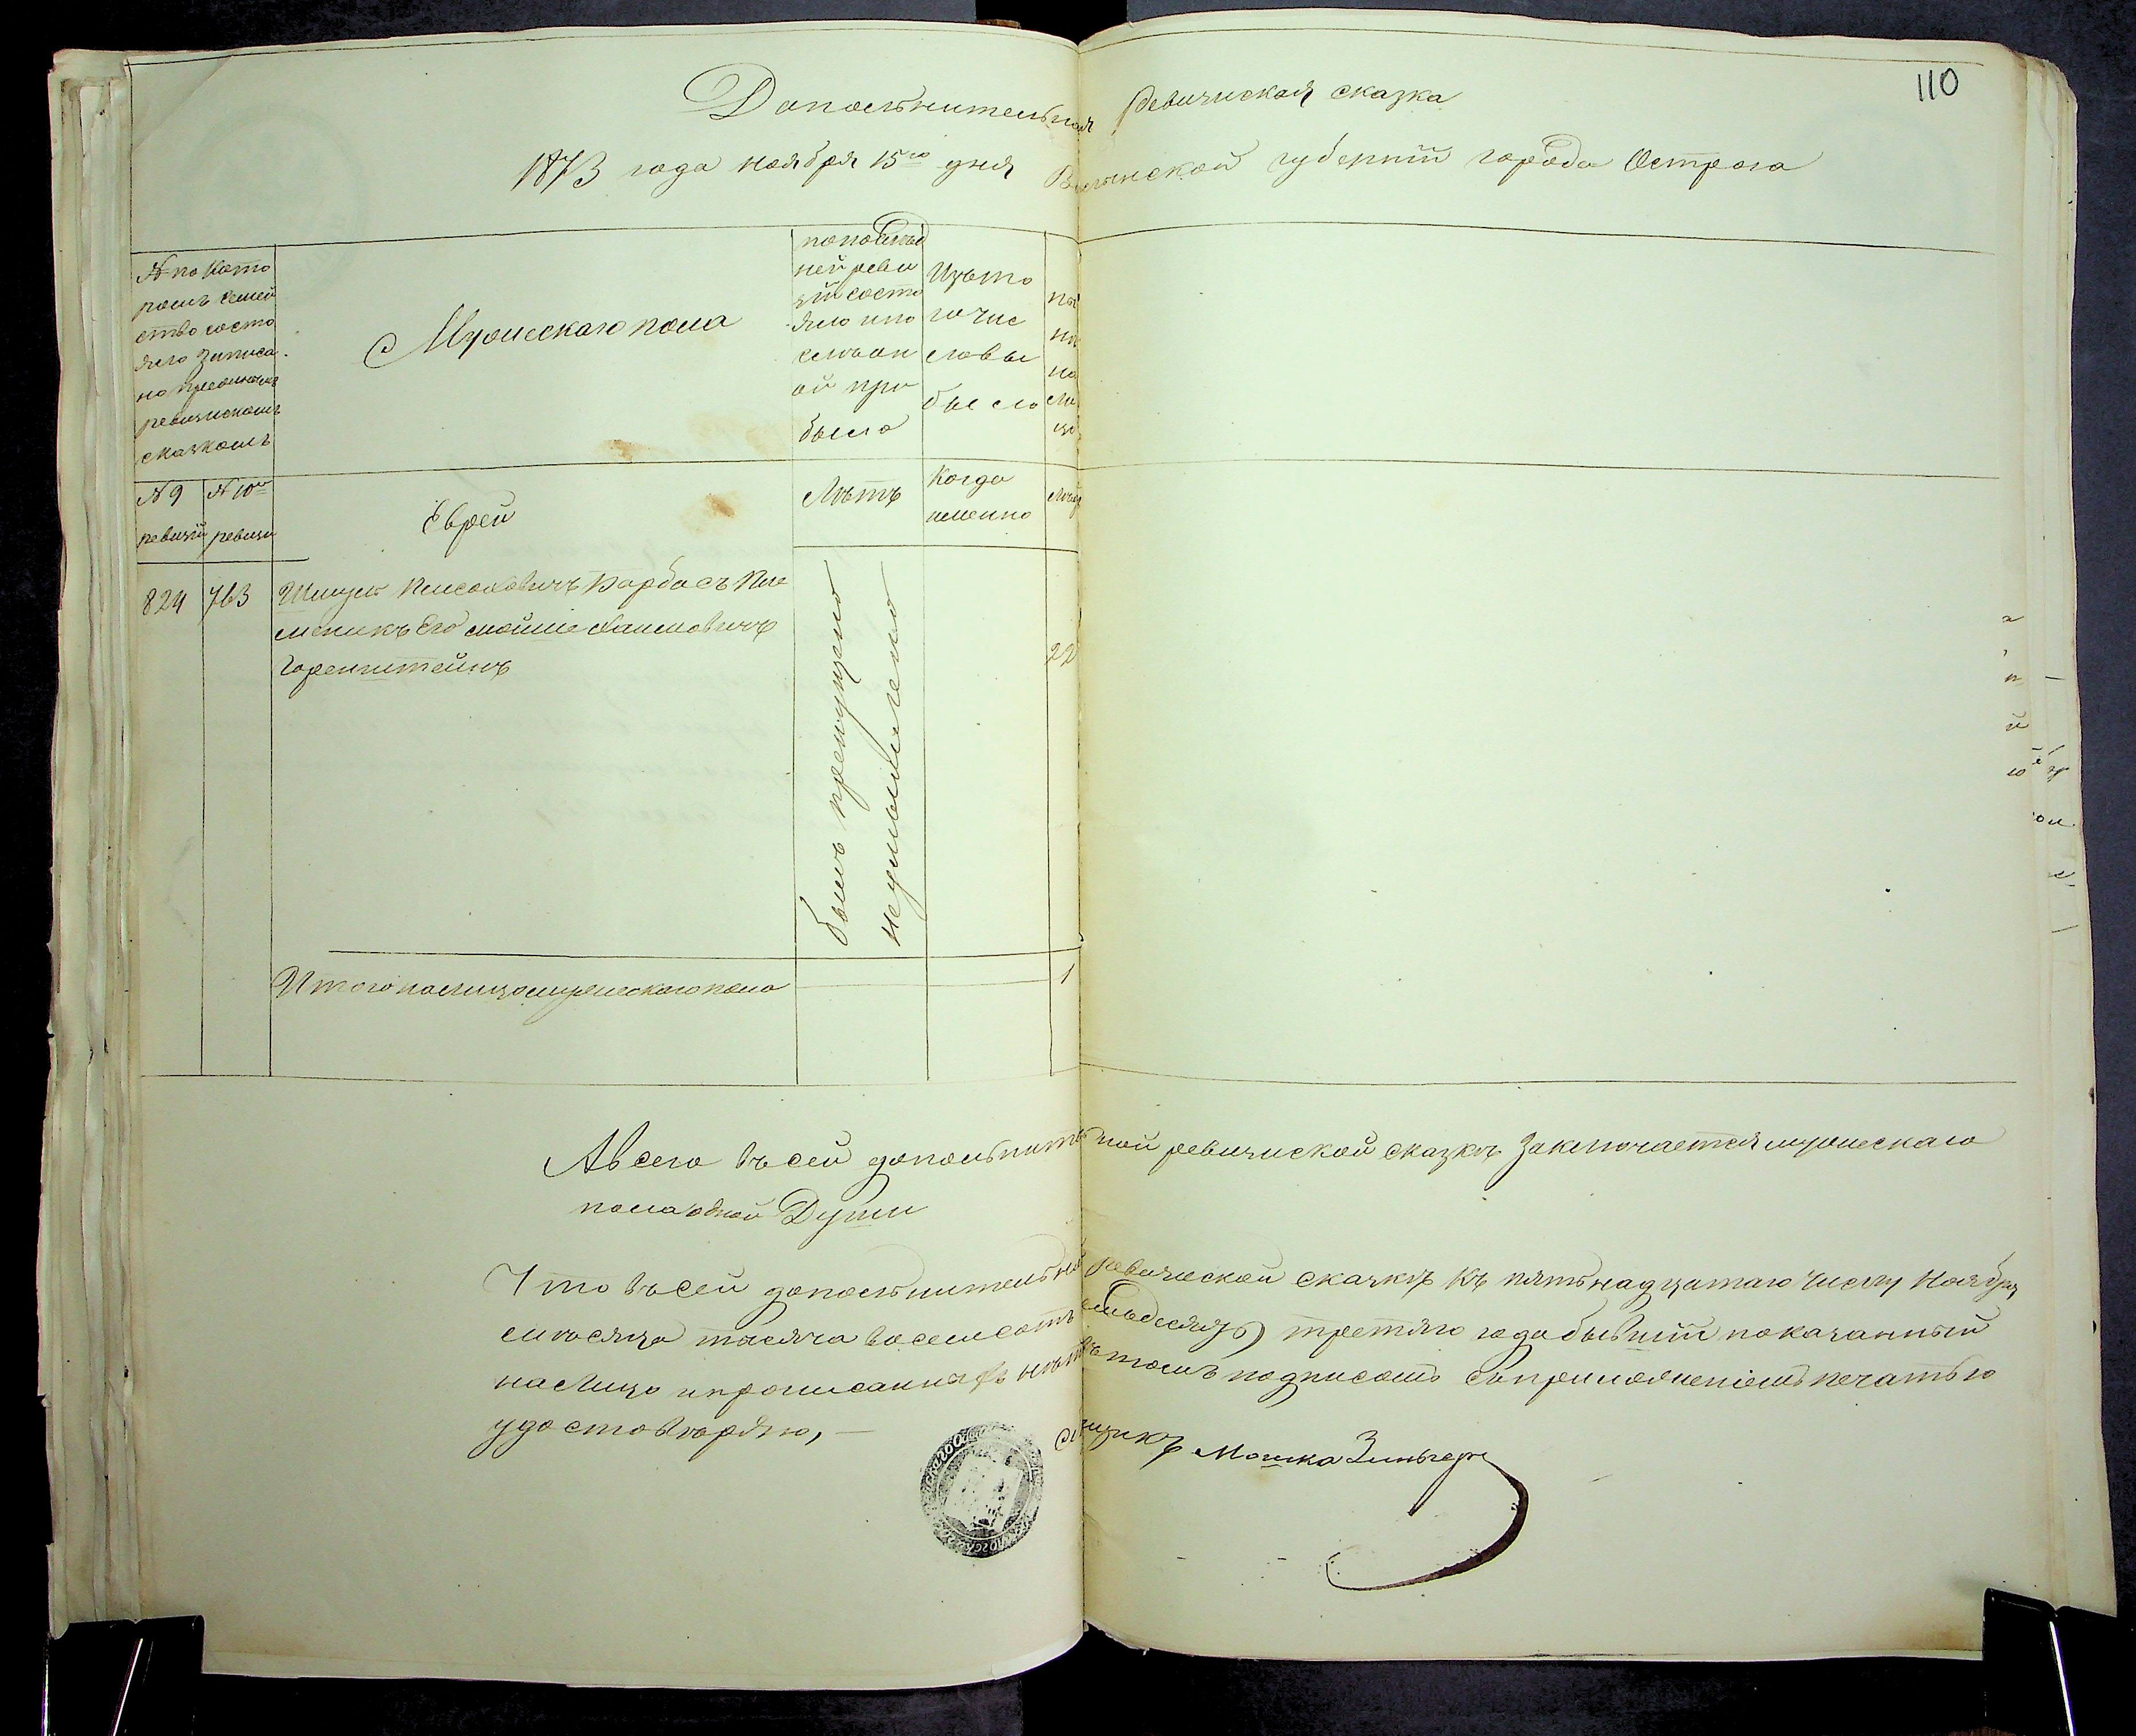 110
Дополнительная Ревизиская сказка
1873 года ноября 15го дня Волынской губернiи города Острога
№ по кото
ромъ семей
ство состо
яло записа-
но
ревизискомъ
сказкомъ
Мужескаго пола
по послѣд
ней реви
зiи состо
яло и по
слѣ он
ой при
было
Изъ то
го чис
ла вы
было
ны
нѣ
на
ли
цо
№ 9
ревизiи
№ 10й
ревизи
Еврей
Лѣтъ
Когда
именно
Лѣтъ
824 763
Барбасъ Пле
меникъ Его
Горенштейнъ
былъ пропущено
неумышлено
22
Итого налицо мужескаго пола 1
А всего въ сей дополнительной ревизиской сказкѣ заключается мужескаго
пола одной Души
Что въ сей дополнительной ревизиской сказкѣ къ пятьнадцатаго числу Ноября
мѣсяца тысяча восемсотъ семьдесятъ третяго года бывшiй показанный
налицо и прописанныхъ нѣтъ въ томъ подписомъ съ приложенiемъ печатью
удостовѣряю, —
Мошка Зингеръ